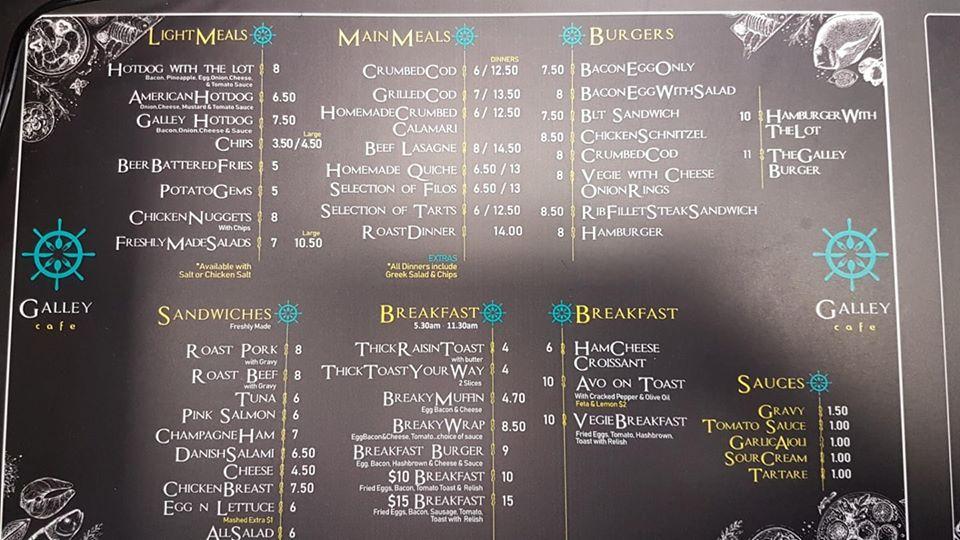 LIGHT MEALS
HOTDOG WITH THE LOT 8
Bacon, Pineapple, Egg,Onion,Cheese,
& Tomato Sauce
AMERICAN HOTDOG 6.50
Onion,Cheese, Mustard & Tomato Sauce
GALLEY HOTDOG 7.50
Bacon,Onion,Cheese & Sauce
Large
CHIPS 3.50/4.50
BEER BATTERED FRIES 5
POTATO GEMS 5
CHICKEN NUGGETS 8
With Chips
Large
FRESHLY MADE SALADS 7 10.50
*Available with
Salt or Chicken Salt
MAIN MEALS
DINNERS
CRUMBED COD 6 / 12.50
GRILLED COD 7 / 13.50
HOMEMADE CRUMBED 6 / 12.50
CALAMARI
BEEF LASAGNE 8 / 14.50
HOMEMADE QUICHE 6.50 / 13
SELECTION OF FILOS 6.50 / 13
SELECTION OF TARTS 6 / 12.50
ROAST DINNER 14.00
EXTRAS
*All Dinners include
Greek Salad & Chips
BURGERS
7.50 BACON EGG ONLY
8 BACON EGG WITH SALAD
7.50 BLT SANDWICH
8.50 CHICKEN SCHNITZEL
8 CRUMBED COD
8 VEGIE WITH CHEESE
ONION RINGS
8.50 RIB FILLET STEAK SANDWICH
8 HAMBURGER
10 HAMBURGER WITH
THE LOT
11 THE GALLEY
BURGER
GALLEY
cafe
GALLEY
cafe
SANDWICHES
Freshly Made
ROAST PORK 8
with Gravy
ROAST BEEF 8
with Gravy
TUNA 6
PINK SALMON 6
CHAMPAGNE HAM 7
DANISH SALAMI 6.50
CHEESE 4.50
CHICKEN BREAST 7.50
EGG N LETTUCE 6
Mashed Extra $1
ALL SALAD 6
BREAKFAST
5.30am - 11.30am
THICK RAISIN TOAST 4
with butter
THICK TOAST YOUR WAY 4
2 Slices
BREAKY MUFFIN 4.70
Egg Bacon & Cheese
BREAKY WRAP 8.50
Egg Bacon & Cheese, Tomato..choice of sauce
BREAKFAST BURGER 9
Egg, Bacon, Hashbrown & Cheese & Sauce
$10 BREAKFAST 10
Fried Eggs, Bacon, Tomato Toast & Relish
$15 BREAKFAST 15
Fried Eggs, Bacon, Sausage, Tomato,
Toast with Relish
BREAKFAST
6 HAM CHEESE
CROISSANT
10 AVO ON TOAST
With Cracked Pepper & Olive Oil
Feta & Lemon $2
10 VEGIE BREAKFAST
Fried Eggs, Tomato, Hashbrown,
Toast with Relish
SAUCES
GRAVY 1.50
TOMATO SAUCE 1.00
GARLIC AIOLI 1.00
SOUR CREAM 1.00
TARTARE 1.00